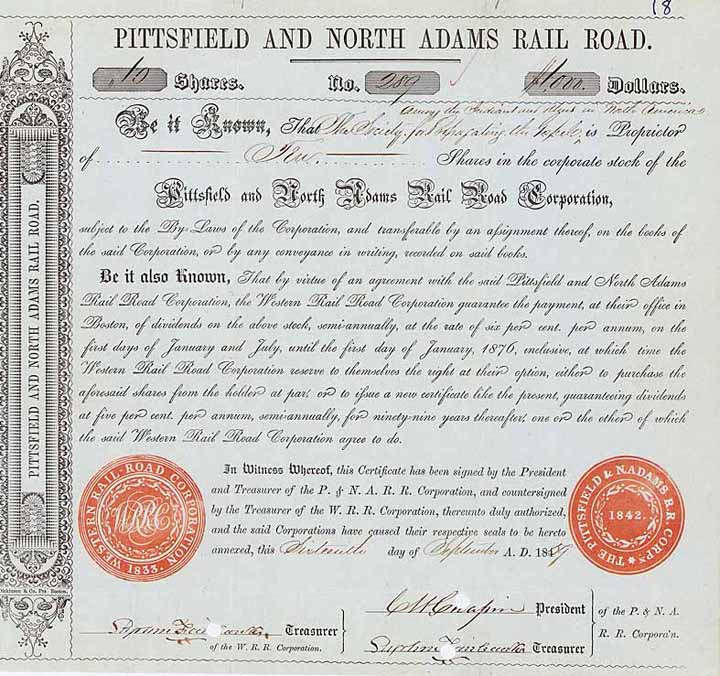 18
PITTSFIELD AND NORTH ADAMS RAIL ROAD.
10 Shares. No. 289 $1000 Dollars.
among the Indians and others in North America
Be it Known, That The Society for propagating the Gospel, is Proprietor
of Ten Shares in the corporate stock of the
Pittsfield and North Adams Rail Road Corporation,
subject to the By-Laws of the Corporation, and transferable by an assignment thereof, on the books of
the said Corporation, or by any conveyance in writing, recorded on said books.
Be it also Known, That by virtue of an agreement with the said Pittsfield and North Adams
Rail Road Corporation, the Western Rail Road Corporation guarantee the payment, at their office in
Boston, of dividends on the above stock, semi-annually, at the rate of six per cent. per annum, on the
first days of January and July, until the first day of January, 1876, inclusive, at which time the
Western Rail Road Corporation reserve to themselves the right at their option, either to purchase the
aforesaid shares from the holder at par; or to issue a new certificate like the present, guaranteeing dividends
at five per cent. per annum, semi-annually, for ninety-nine years thereafter, one or the other of which
the said Western Rail Road Corporation agree to do.
In Witness Whereof, this Certificate has been signed by the President
and Treasurer of the P. & N. A. R. R. Corporation, and countersigned
by the Treasurer of the W. R. R. Corporation, thereunto duly authorized,
and the said Corporations have caused their respective seals to be hereto
annexed, this Sixteenth day of September A. D. 18
WESTERN RAIL-ROAD CORPORATION
WRRC
1833.
THE PITTSFIELD & N.ADAMS R.R. CORPN.
1842.
President
Treasurer
of the W. R. R. Corporation.
Treasurer
of the P. & N. A.
R. R. Corpora'n.
PITTSFIELD AND NORTH ADAMS RAIL ROAD.
Dickinson & Co. Prs Boston.